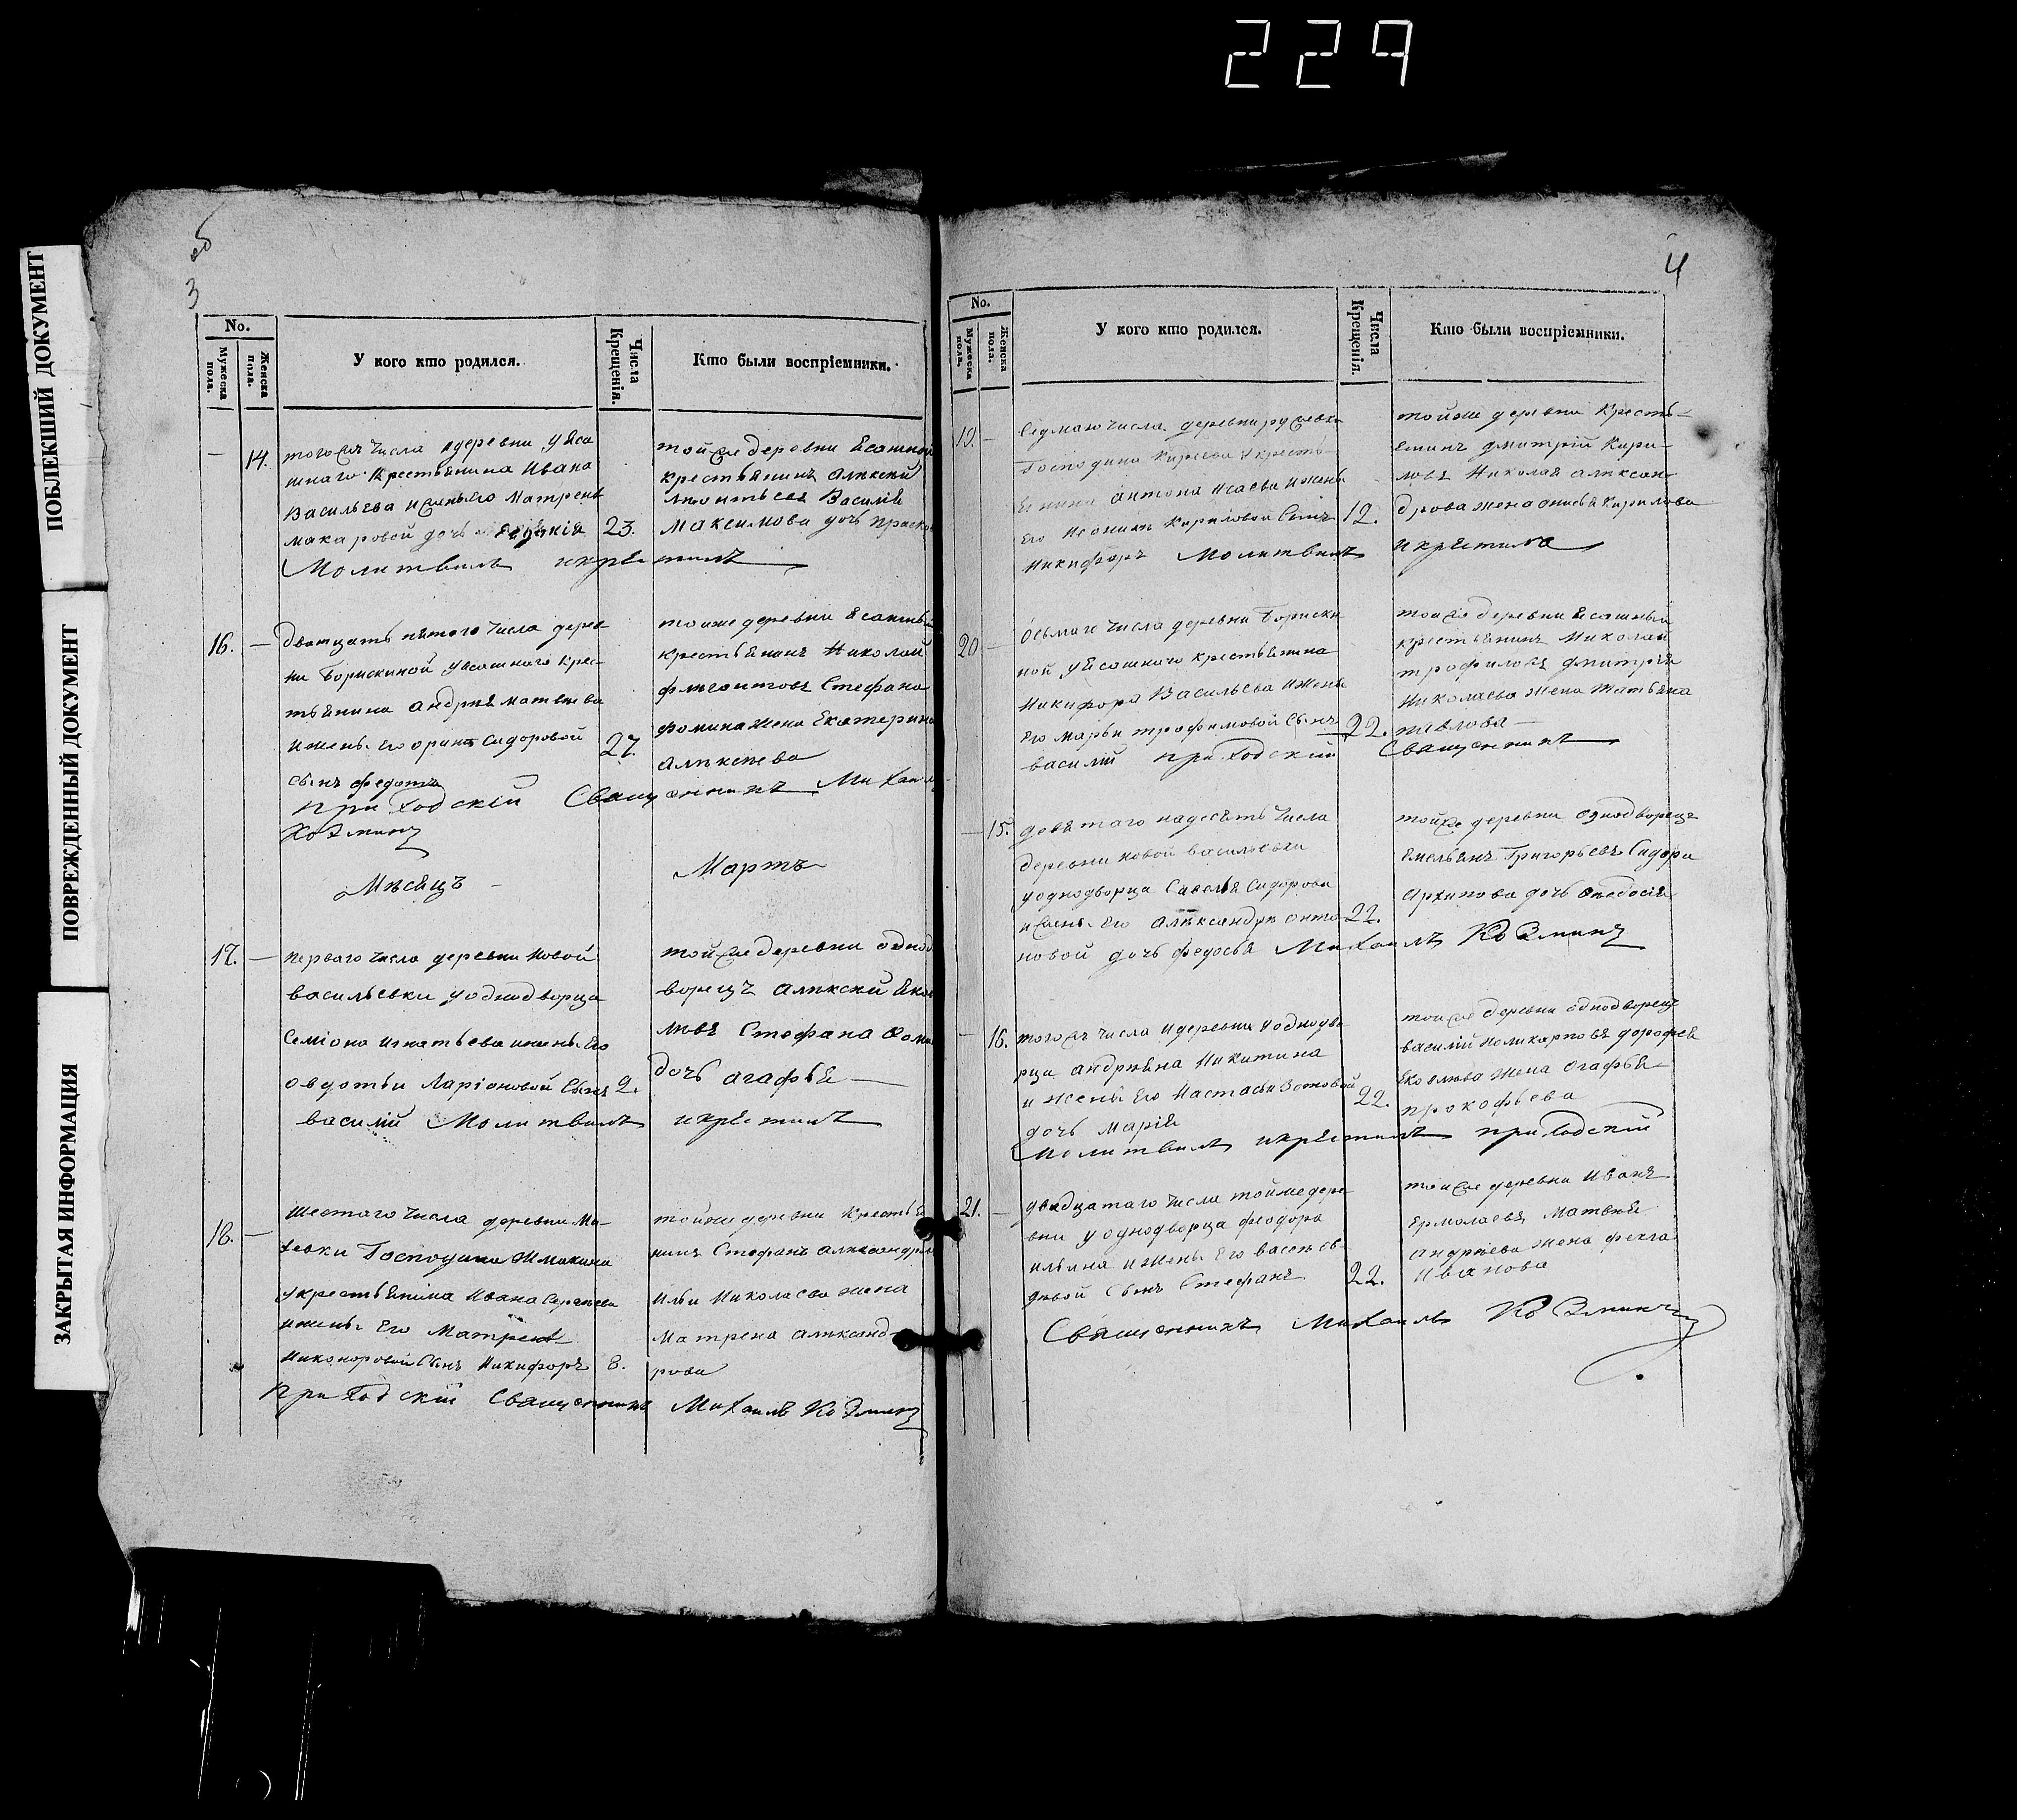 229
ПОБЛЕКШИЙ ДОКУМЕНТ
ПОВРЕЖДЕННЫЙ ДОКУМЕНТ
ЗАКРЫТАЯ ИНФОРМАЦИЯ
об
3
No.
Мужеска пола.
Женска пола.
У кого кто родился.
Числа Крещенія.
Кто были воспріемники.
14. тогожъ числа и деревни уяса
шнаго крестьянина Ивана
Васильева и жены его Матрены
макаровой дочь 23.
той же деревни Ясашной
крестьянинъ Алѣксѣй
Лѣонтьевъ Василія
Максимова дочь
Молитвилъ икрестилъ
16. Дватцать пятого числа дерев
ни Борискиной уясашного крес
тьянина андрея матвѣева
и жены его орины Сидоровой 27.
сынъ федотъ
тоиже деревни Ясашный
крестьянинъ Николай
Стефана
фомина жена Екатерина
алѣксѣева
приходскій Священникъ Михаилъ
Козминъ
Мѣсяцъ Мартъ
17. перваго числа деревни новой
васильевки уоднодворца
Семіона игнатьева и жены его
овдотьи Ларіоновой Сынъ 2.
василій Молитвилъ икрестилъ
той же деревни однод
ворецъ алѣксѣй
Стефана
дочь агафья
18. шестаго числа деревни Ма-
хѣвки Господина
укрестьянина Ивана Сергѣева
и жены Его Матрены
Никоноровой Сынъ Никифоръ 8.
тойже деревни крестья
нинъ Стефанъ алѣксандр
Ильи Николаева жена
Матрена алѣксанд-
рова
приходскій Священникъ Михаилъ Козминъ
4
No.
Мужеска пола.
Женска пола.
У кого кто родился.
Числа Крещенія.
Кто были воспріемники.
19. Седмаго числа деревни
Господина Киреева укресть
янина антона Исаева и жены
Его Кириловой Сынъ 12.
Никифоръ Молитвилъ икрестилъ
тойже деревни Кресть-
янинъ дмитрій Кири-
ловъ Николая алѣксан
дрова жена анисья Кирилова
20 осьмаго числа деревни Бориски
ной уясашного крестьянина
Никифора Васильева и жены
Его марьи трофимовой Сынъ 22.
василій приходскій Священникъ
тоиже деревни Ясашный
крестьянинъ Николай
трофиловъ дмитрія
Николаева жена Татьяна
павлова
15. девятаго надесять числа
деревни новой васильевки
уоднодворца Савелья Сидорова
и жены Его Алѣксандры анто 22.
новой дочь федосья Михаилъ Козминъ
тойже деревни однодворецъ
Емельянъ Григорьевъ Сидора
Архипова дочь Ѳеодосія
16. тогожъ числа и деревни уоднодво
рца андрѣяна Никитина
и жены Его Настасьи Зотовой 22.
дочь марія
Молитвилъ икрестилъ приходскій
тоиже деревни однодворецъ
василій поликарповъ дорофея
Яковлева жена агафья
прокофьева
21. двадцатаго числа тойже дере
вни уоднодворца феодора
ильина и жены Его
Сынъ Стефанъ 22.
тоиже деревни Иванъ
Ермолаевъ Матвѣя
андрѣева жена фекла
Иванова
Священникъ Михаилъ Козминъ